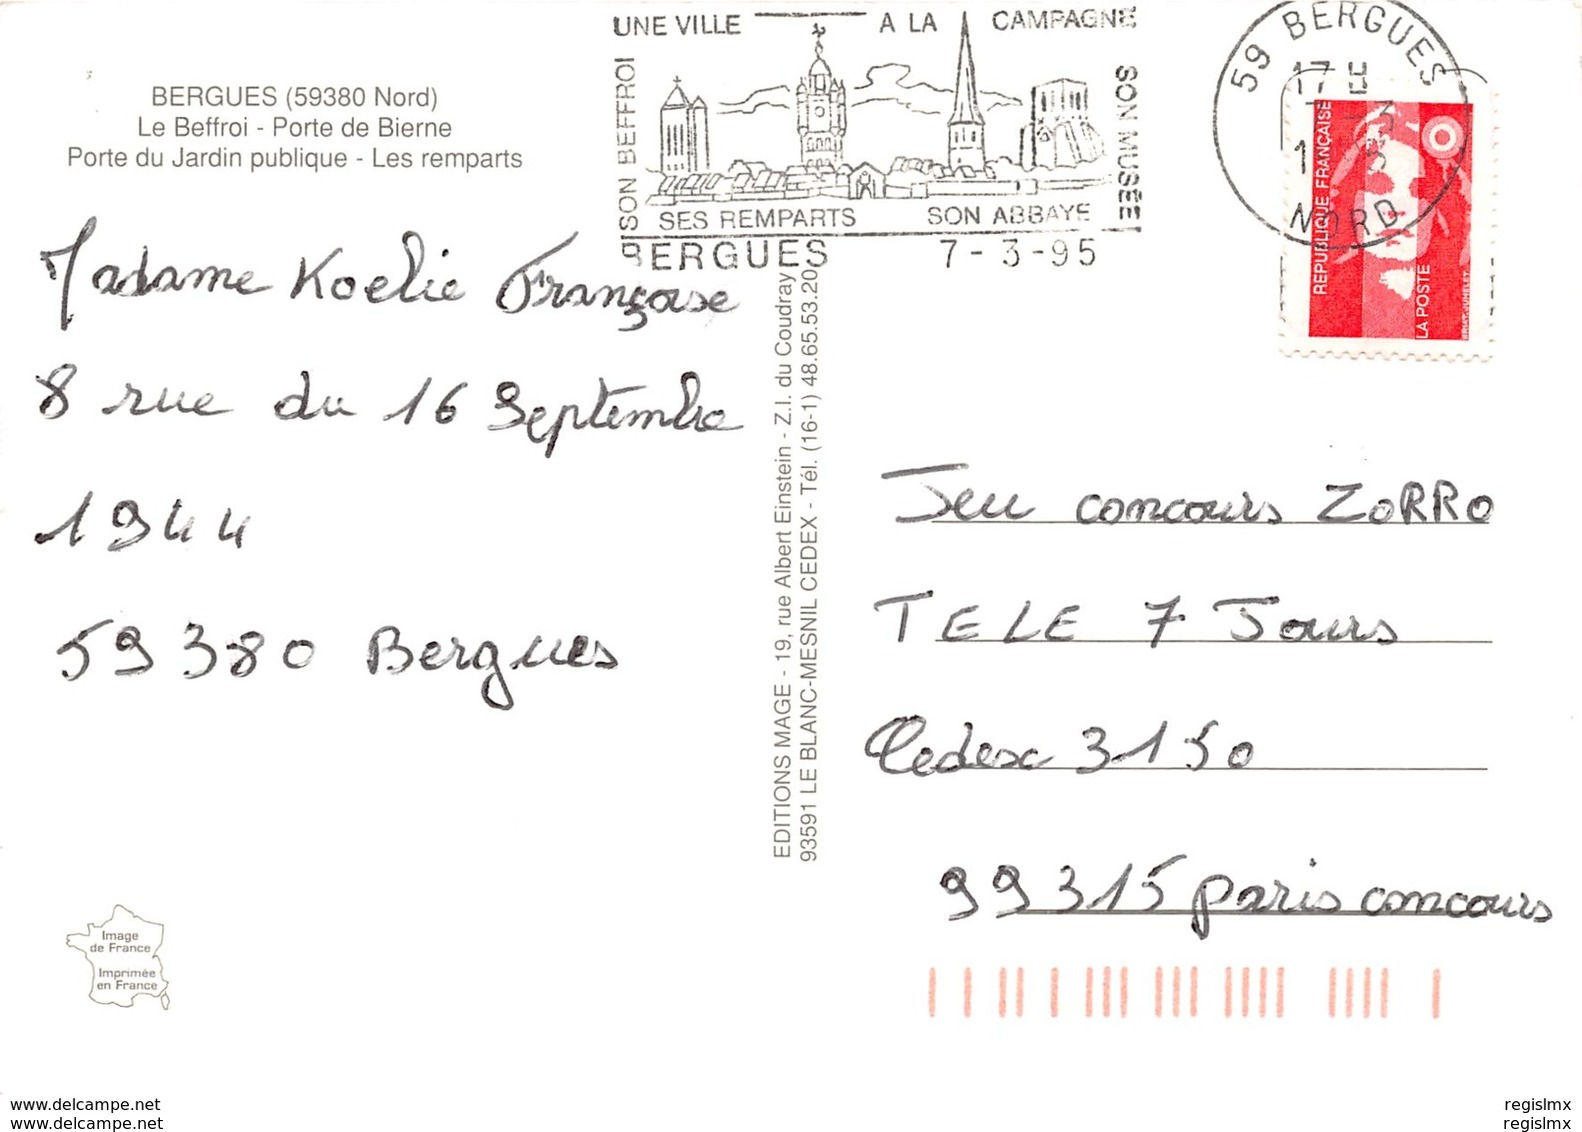 UNE VILLE A LA CAMPAGNE
SON BEFFROI
SON MUSÉE
SES REMPARTS SON ABBAYE
BERGUES 7-3-95
59 BERGUES
17 H
NORD
RÉPUBLIQUE FRANÇAISE
LA POSTE
BERGUES (59380 Nord)
Le Beffroi - Porte de Bierne
Porte du Jardin publique - Les remparts
Madame Koelie Françoise
8 rue du 16 Septembre
1944
59380 Bergues
EDITIONS MAGE - 19, rue Albert Einstein - Z.I. du Coudray
93591 LE BLANC-MESNIL CEDEX - Tél. (16-1) 48.65.53.20
Jeu concours ZORRO
TELE 7 Jours
Cedex 3150
99315 paris concours
Image
de France
Imprimée
en France
www.delcampe.net
www.delcampe.net
regislmx
regislmx